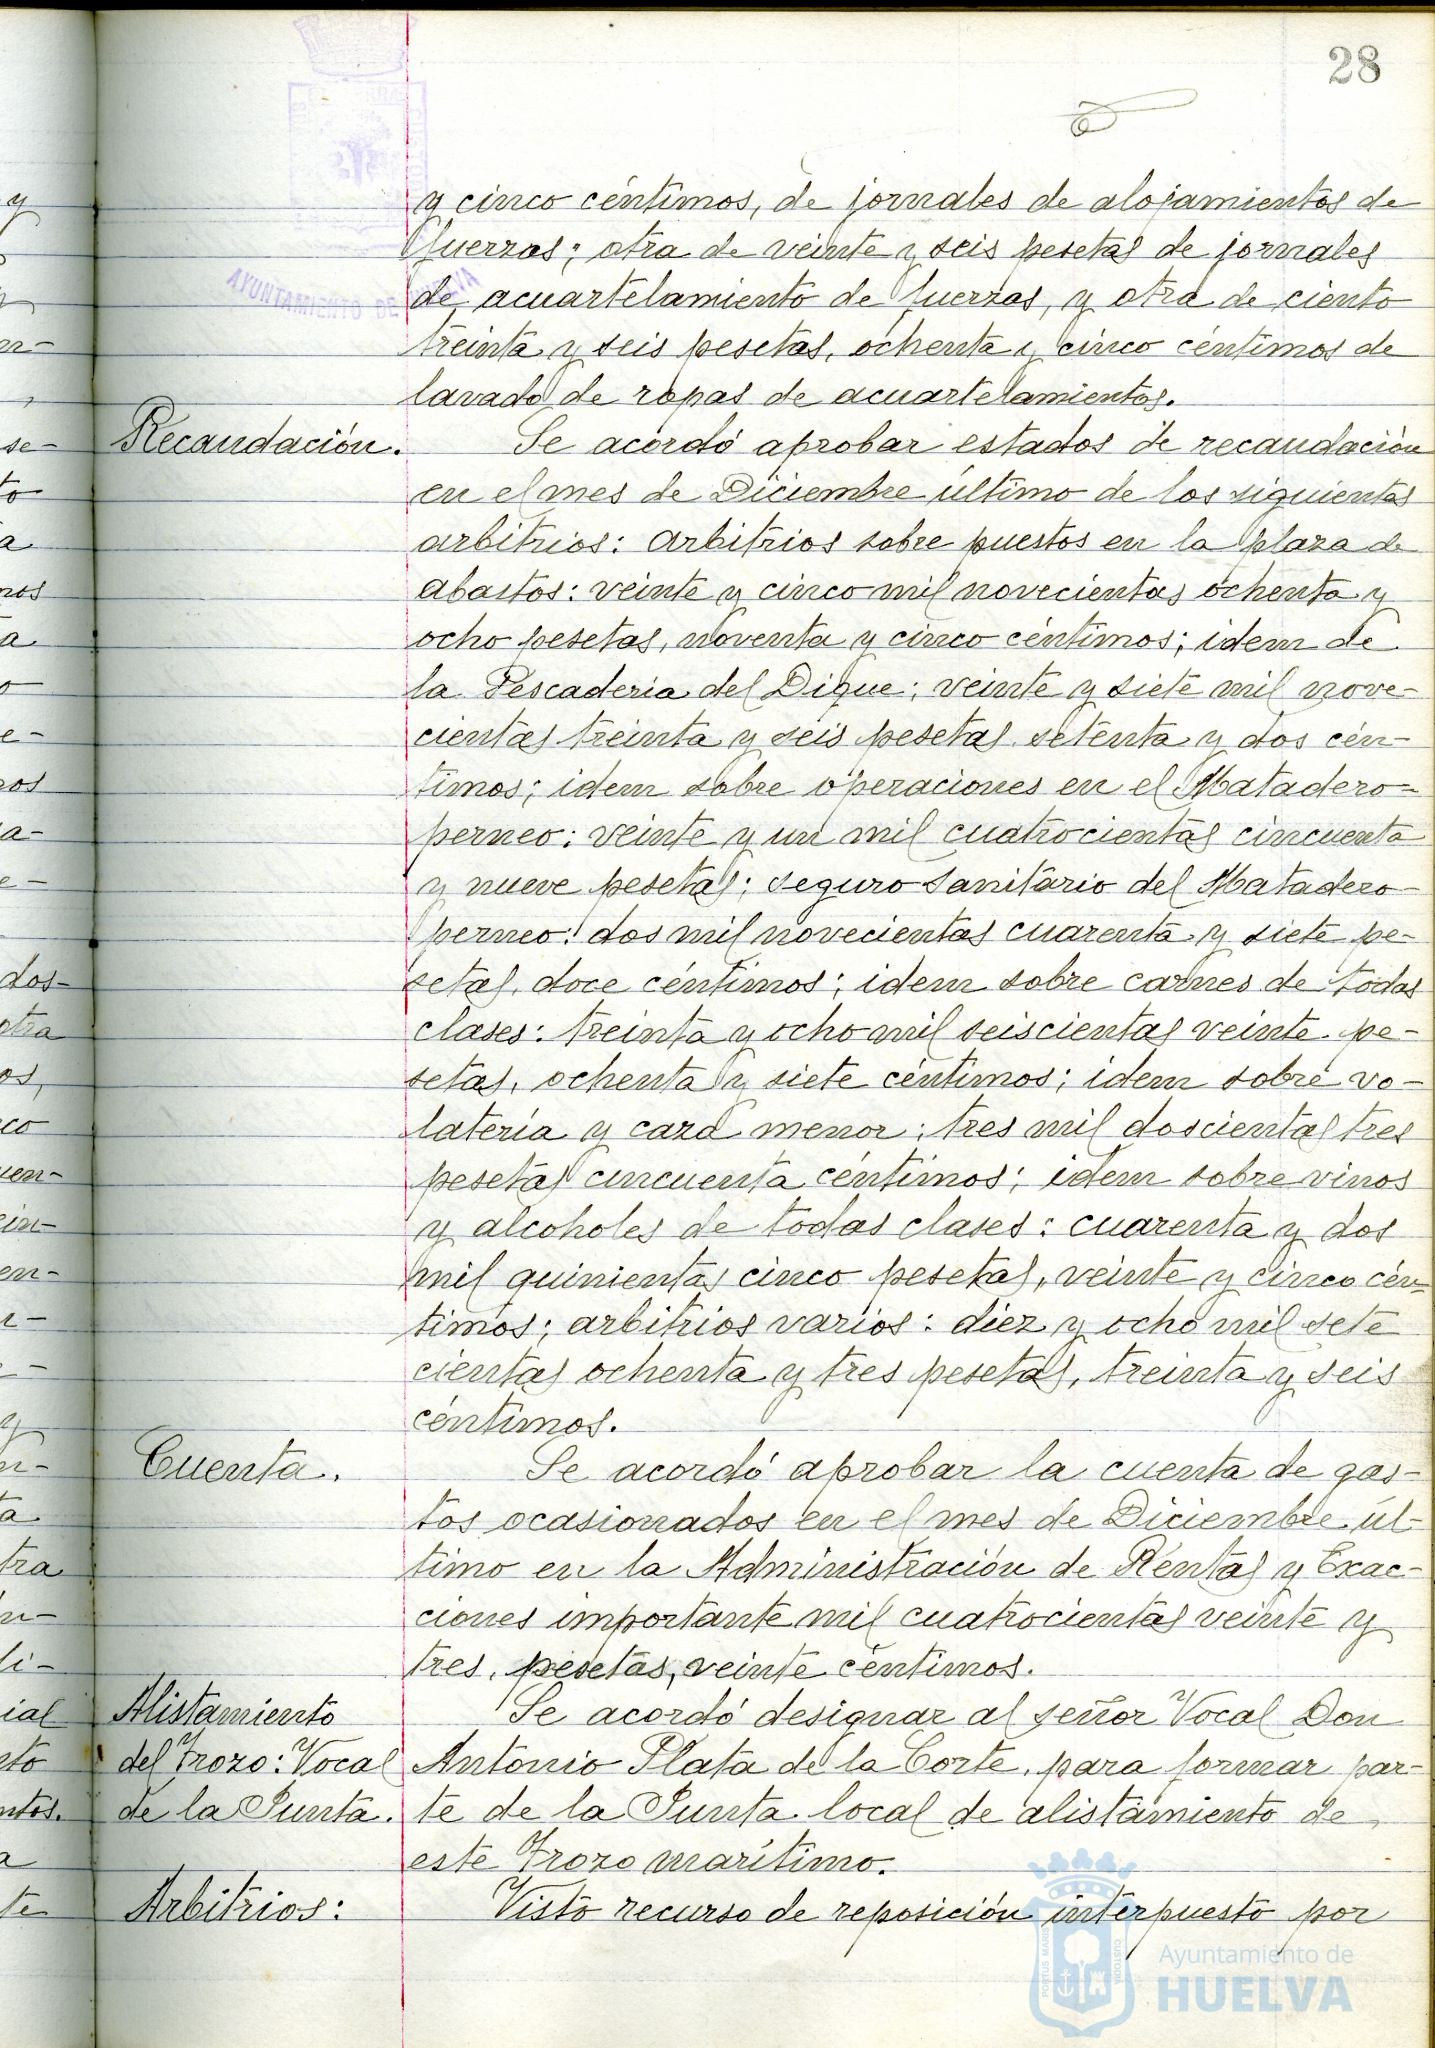 28
y cinco céntimos, de jornales de alojamientos de
fuerzas; otra de veinte y seis pesetas de jornales
AYUNTAMIENTO DE HUELVA
de acuartelamiento de fuerzas, y otra de ciento
treinta y seis pesetas, ochenta y cinco céntimos de
lavado de ropas de acuartelamientos.
Recaudación. Se acordó aprobar estados de recaudación
en el mes de Diciembre último de los siguientes
arbitrios: arbitrios sobre puestos en la plaza de
abastos: veinte y cinco mil novecientas ochenta y
ocho pesetas, noventa y cinco céntimos; idem de
la Pescaderia del Dique; veinte y siete mil nove-
cientas treinta y seis pesetas setenta y dos cén-
timos; idem sobre operaciones en el Matadero-
perneo: veinte y un mil cuatrocientas cincuenta
y nueve pesetas; seguro sanitario del Matadero-
perneo: dos mil novecientas cuarenta y siete pe-
setas, doce céntimos; idem sobre carnes de todas
clases: treinta y ocho mil seiscientas veinte pe-
setas, ochenta y siete céntimos; idem sobre vo-
latería y caza menor; tres mil doscientas tres
pesetas cincuenta céntimos; idem sobre vinos
y alcoholes de todas clases: cuarenta y dos
mil quinientas cinco pesetas, veinte y cinco cén-
timos; arbitrios varios: diez y ocho mil sete
cientas ochenta y tres pesetas, treinta y seis
céntimos.
Cuenta. Se acordó aprobar la cuenta de gas-
tos ocasionados en el mes de Diciembre úl-
timo en la Administración de Rentas y Exac-
ciones importante mil cuatrocientas veinte y
tres, pesetas, veinte céntimos.
Alistamiento Se acordó designar al señor Vocal Don
del Trozo: Vocal Antonio Plata de la Corte, para formar par-
de la Junta. te de la Junta local de alistamiento de
este Trozo marítimo.
Arbitrios: Visto recurso de reposición interpuesto por
PORTUS MARIS
CUSTODIA
Ayuntamiento de
HUELVA